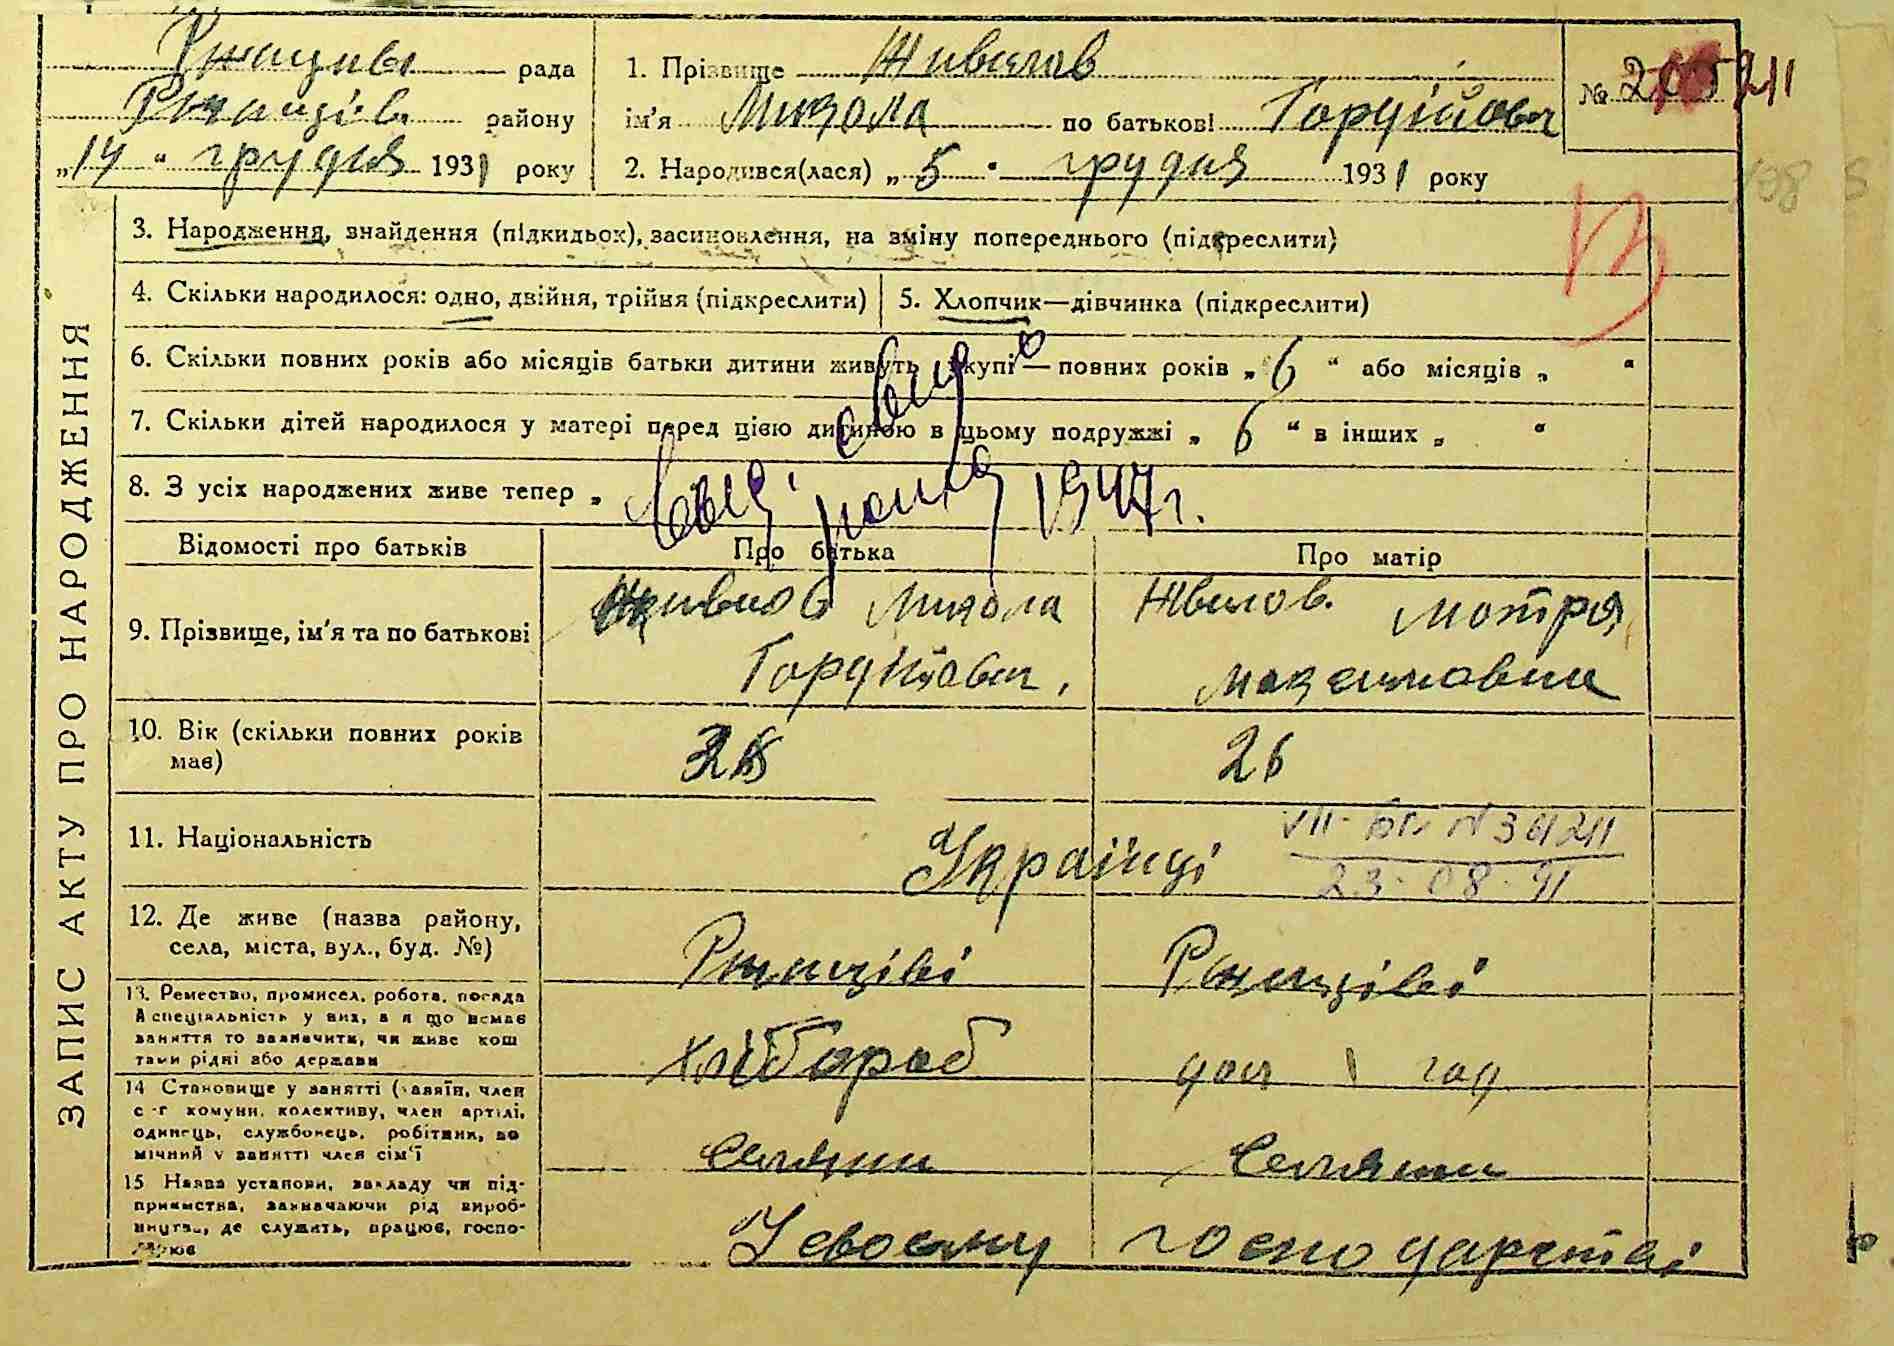 рада
району
„14 “ грудня 1931 року
1. Прізвище Живилов
ім'я Микола по батькові Гордійович
2. Народився(лася) „ 5 “ грудня 1931 року
№ 211
ЗАПИС АКТУ ПРО НАРОДЖЕННЯ
3. Народження, знайдення (підкидьок), засиновлення, на зміну попереднього (підкреслити)
4. Скільки народилося: одно, двійня, трійня (підкреслити)
5. Хлопчик—дівчинка (підкреслити)
6. Скільки повних років або місяців батьки дитини живуть вкупі — повних років „ 6 “ або місяців „ “
7. Скільки дітей народилося у матері перед цією дитиною в цьому подружжі „ 6 “ в інших „ “
8. З усіх народжених живе тепер „
1947 г.
Відомості про батьків
Про батька
Про матір
9. Прізвище, ім'я та по батькові
Микола
Гордійович,
Мотря
Максимовна
10. Вік (скільки повних років має)
26
11. Національність
Українці
VII-БК № 361211
23.08.91
12. Де живе (назва району,
села, міста, вул., буд. №)
Ржищеві
Ржищеві
13. Ремество, промисел, робота, посада
й спеціяльність у них, а я що немає
заняття то зазначити, чи живе кош
тами рідні або держави
хлібороб
дом год
14 Становище у занятті (хазяїн, член
с-г комуни, колективу, член артілі,
одинець, службовець, робітник, по
мічний у занятті член сім'ї
селяни
селяни
15 Назва установи, закладу чи під-
приємства, зазначаючи рід вироб-
ництва, де служить, працює, госпо-
дарює
У своєму господарстві